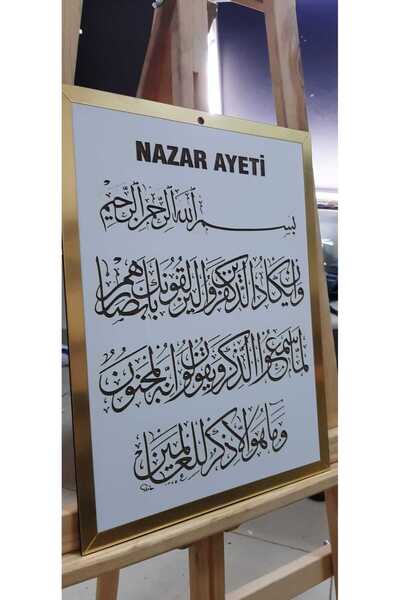 NAZAR AYETİ
بسم الله الرحمن الرحيم
وان يكاد الذين كفروا ليزلقونك بابصارهم
لما سمعوا الذكر ويقولون انه لمجنون
وما هو الا ذكر للعالمين